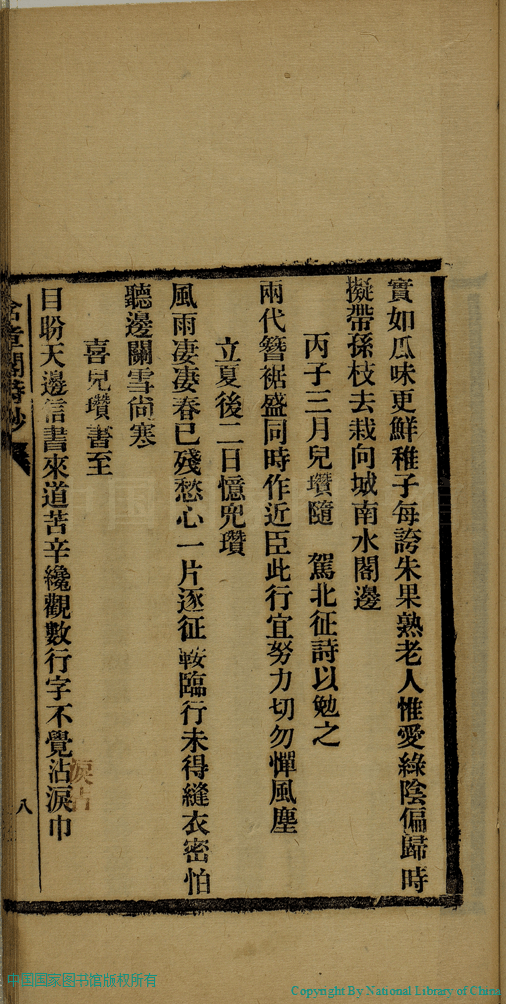 實如瓜味更鮮稚子每誇朱果熟老人惟愛綠陰偏歸時
擬帶孫枝去栽向城南水閣邊
丙子三月兒瓚隨 駕北征詩以勉之
兩代簪裾盛同時作近臣此行宜努力切勿憚風塵
立夏後二日憶兒瓚
風雨凄凄春已殘愁心一片逐征鞍臨行未得縫衣密怕
聽邊關雪尙寒
喜兒瓚書至
目盼天邊信書來道苦辛纔觀數行字不覺沾淚巾
淚沾
含章閣詩鈔
八
中国国家图书馆版权所有
Copyright By National Library of China